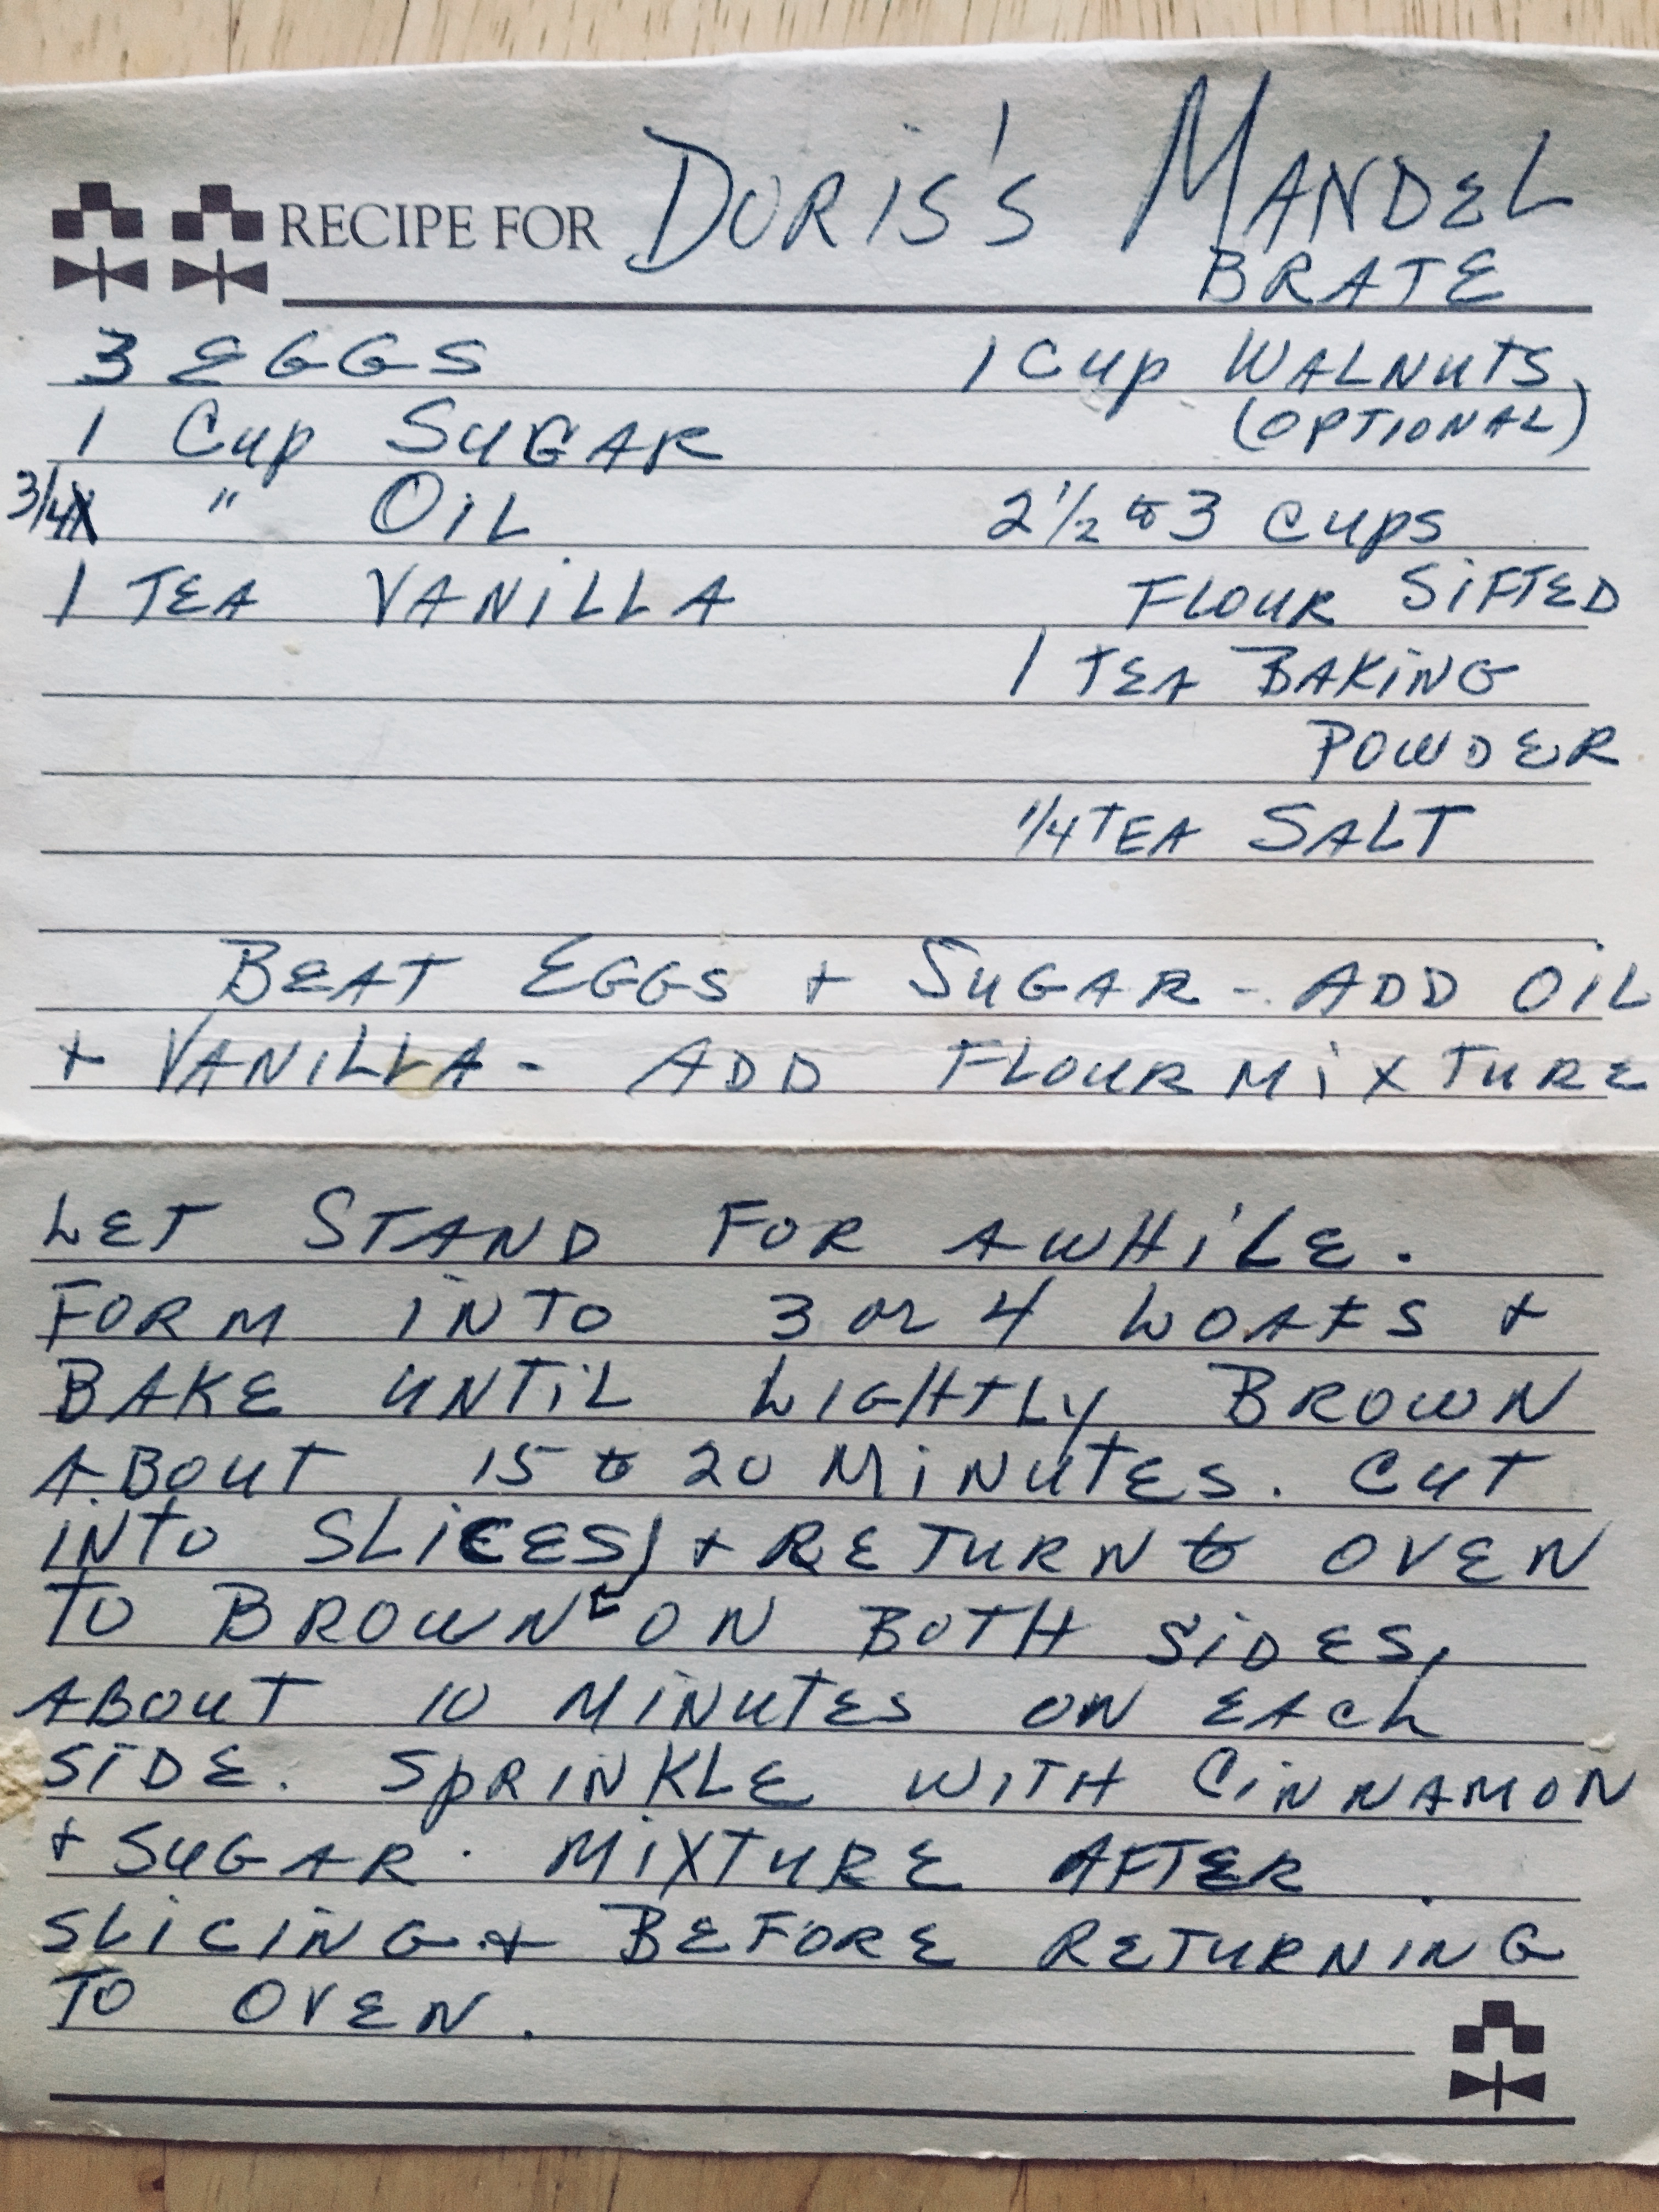 RECIPE FOR DORIS'S MANDEL
BRATE
3 EGGS
1 CUP SUGAR
3/4 " OIL
1 TEA VANILLA
1 CUP WALNUTS
(OPTIONAL)
2 1/2 to 3 CUPS
FLOUR SIFTED
1 TEA BAKING
POWDER
1/4 TEA SALT
BEAT EGGS + SUGAR - ADD OIL
+ VANILLA - ADD FLOUR MIXTURE
LET STAND FOR AWHILE.
FORM INTO 3 or 4 LOAFS +
BAKE UNTIL LIGHTLY BROWN
ABOUT 15 to 20 MINUTES. CUT
INTO SLICES, + RETURN to OVEN
TO BROWN ON BOTH SIDES,
ABOUT 10 MINUTES ON EACH
SIDE. SPRINKLE WITH CINNAMON
+ SUGAR. MIXTURE AFTER
SLICING + BEFORE RETURNING
TO OVEN.